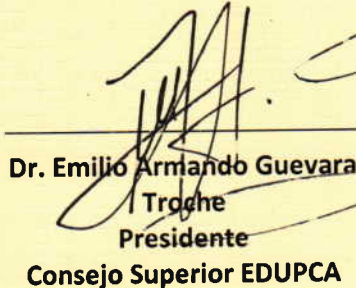 Dr. Emilio Armando Guevara
Troche
Presidente
Consejo Superior EDUPCA